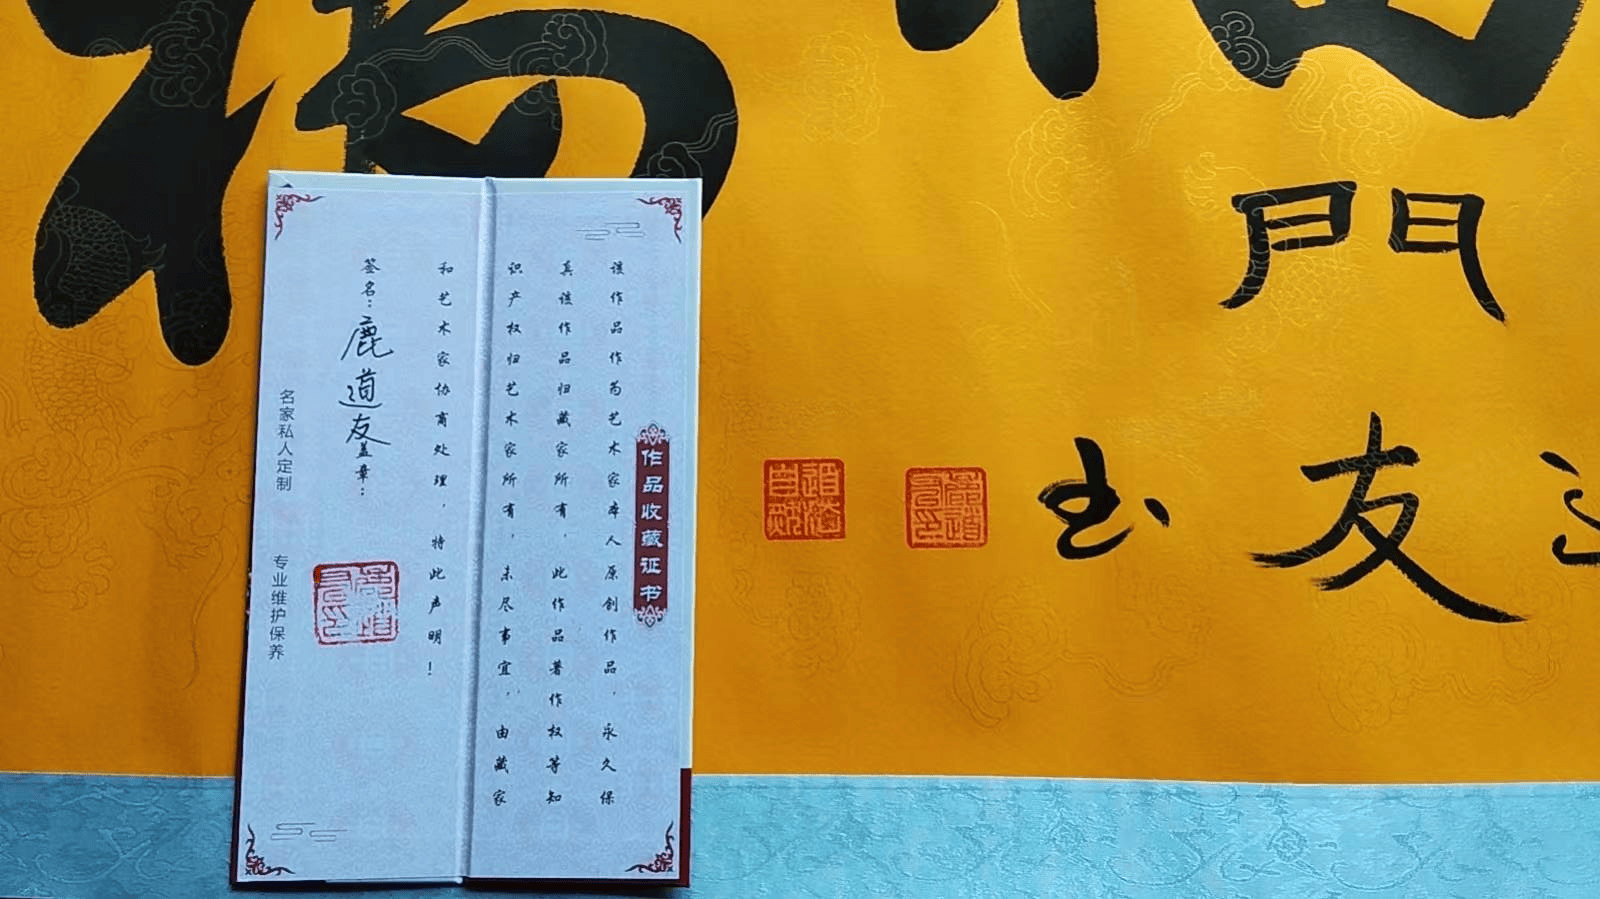 作品收藏证书
该作品作为艺术家本人原创作品，永久保
真该作品归藏家所有，此作品著作权等知
识产权归艺术家所有，未尽事宜，由藏家
和艺术家协商处理，特此声明！
签名：鹿道友盖章：
名家私人定制 专业维护保养
門
友
书
道法自然